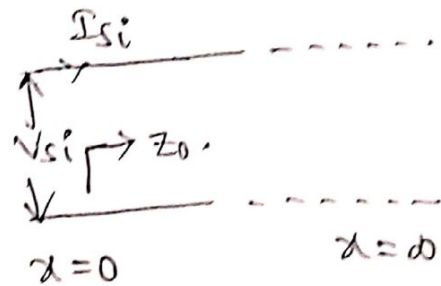 Isi
Vsi
Z0.
x=0
x=∞